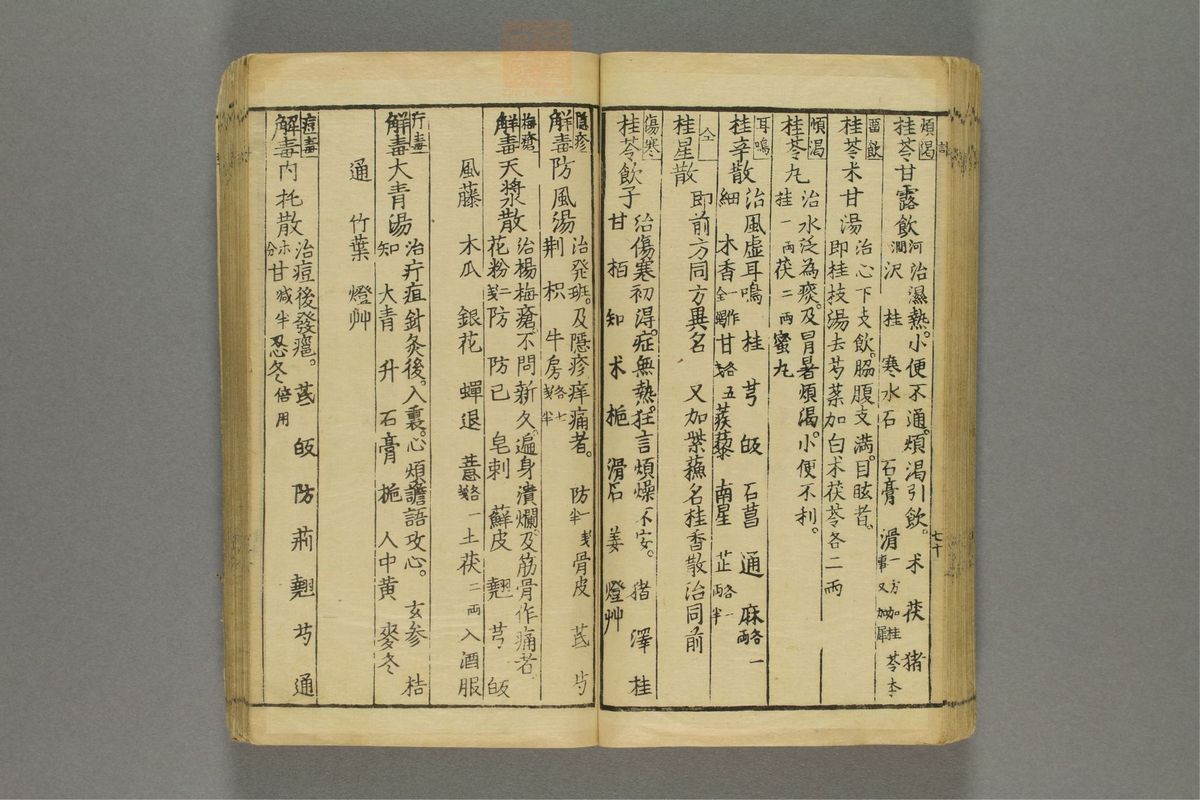 煩渇
桂苓甘露飲 河澗 治濕熱。小便不通。煩渇引飲。 朮 茯 猪
沢 桂 寒水石 石膏 滑 一方加桂苓李
畱飲
桂苓朮甘湯 治心下支飲。脇腹支満。目眩者。
即桂枝湯去芍薬加白朮茯苓各二両
煩渇
桂苓丸 治水泛為痰。及冒暑煩渇。小便不利。
桂一両 茯二両 蜜丸
耳鳴
桂辛散 治風虚耳鳴 桂 芎 皈 石菖 通 麻各一両
細 木香 甘 五 蒺藜 南星 芷各一両半
仝
桂星散 即前方同方異名 又加紫蘓名桂香散治同前
傷寒
桂苓飲子 治傷寒初得。症無熱。狂言煩燥不安。 猪 澤 桂
甘 栢 知 朮 梔 滑石 姜 燈艸
七十
隠疹
解毒防風湯 治発斑。及隠疹痒痛者。 防一戋半 骨皮 芪 芍
荆 枳 牛房各七戋半
梅瘡
解毒天漿散 治楊梅瘡。不問新久。遍身潰爛。及筋骨作痛者
花粉二戋 防 防已 皂刺 蘇皮 翹 芎 皈
風藤 木瓜 銀花 蟬退 薏各一戋 土茯二両 入酒服
疔毒
解毒大青湯 治疔疽針灸後。入裏。心煩譫語攻心。 玄参 桔
知 大青 升 石膏 梔 人中黄 麥冬
通 竹葉 燈艸
痘毒
解毒内托散 治痘後發癰。 芪 皈 防 荊 翹 芍 通
木分 甘減半 忍冬倍用